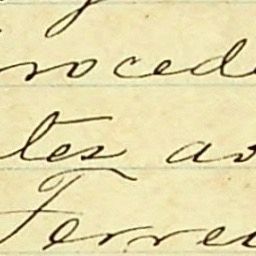 rocede
tes as
Ferrei